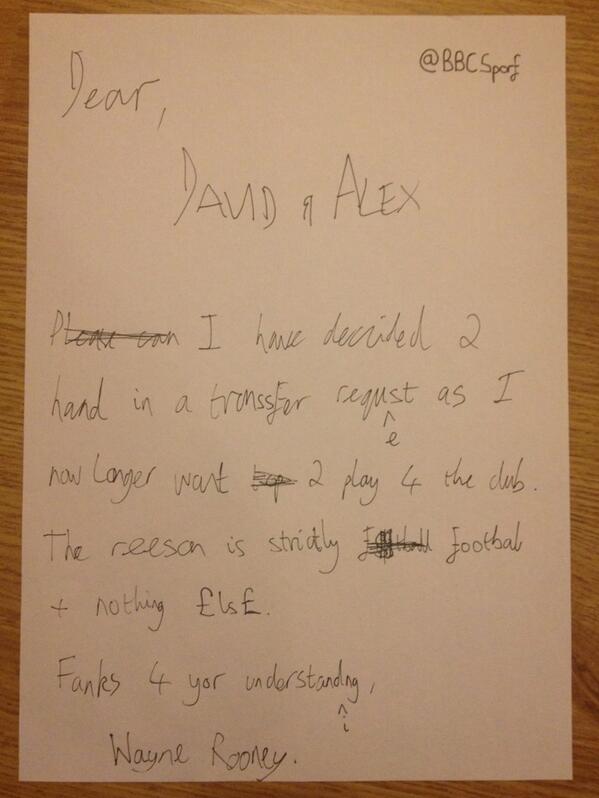 @BBCSporf
Dear,
DAVID & ALEX
Please can I have decided 2
hand in a transsfer requst as I
e
now Longer want 2 play 4 the club.
The reeson is strictly football footbal
+ nothing £ls£.
Fanks 4 yor understandng,
i
Wayne Rooney.